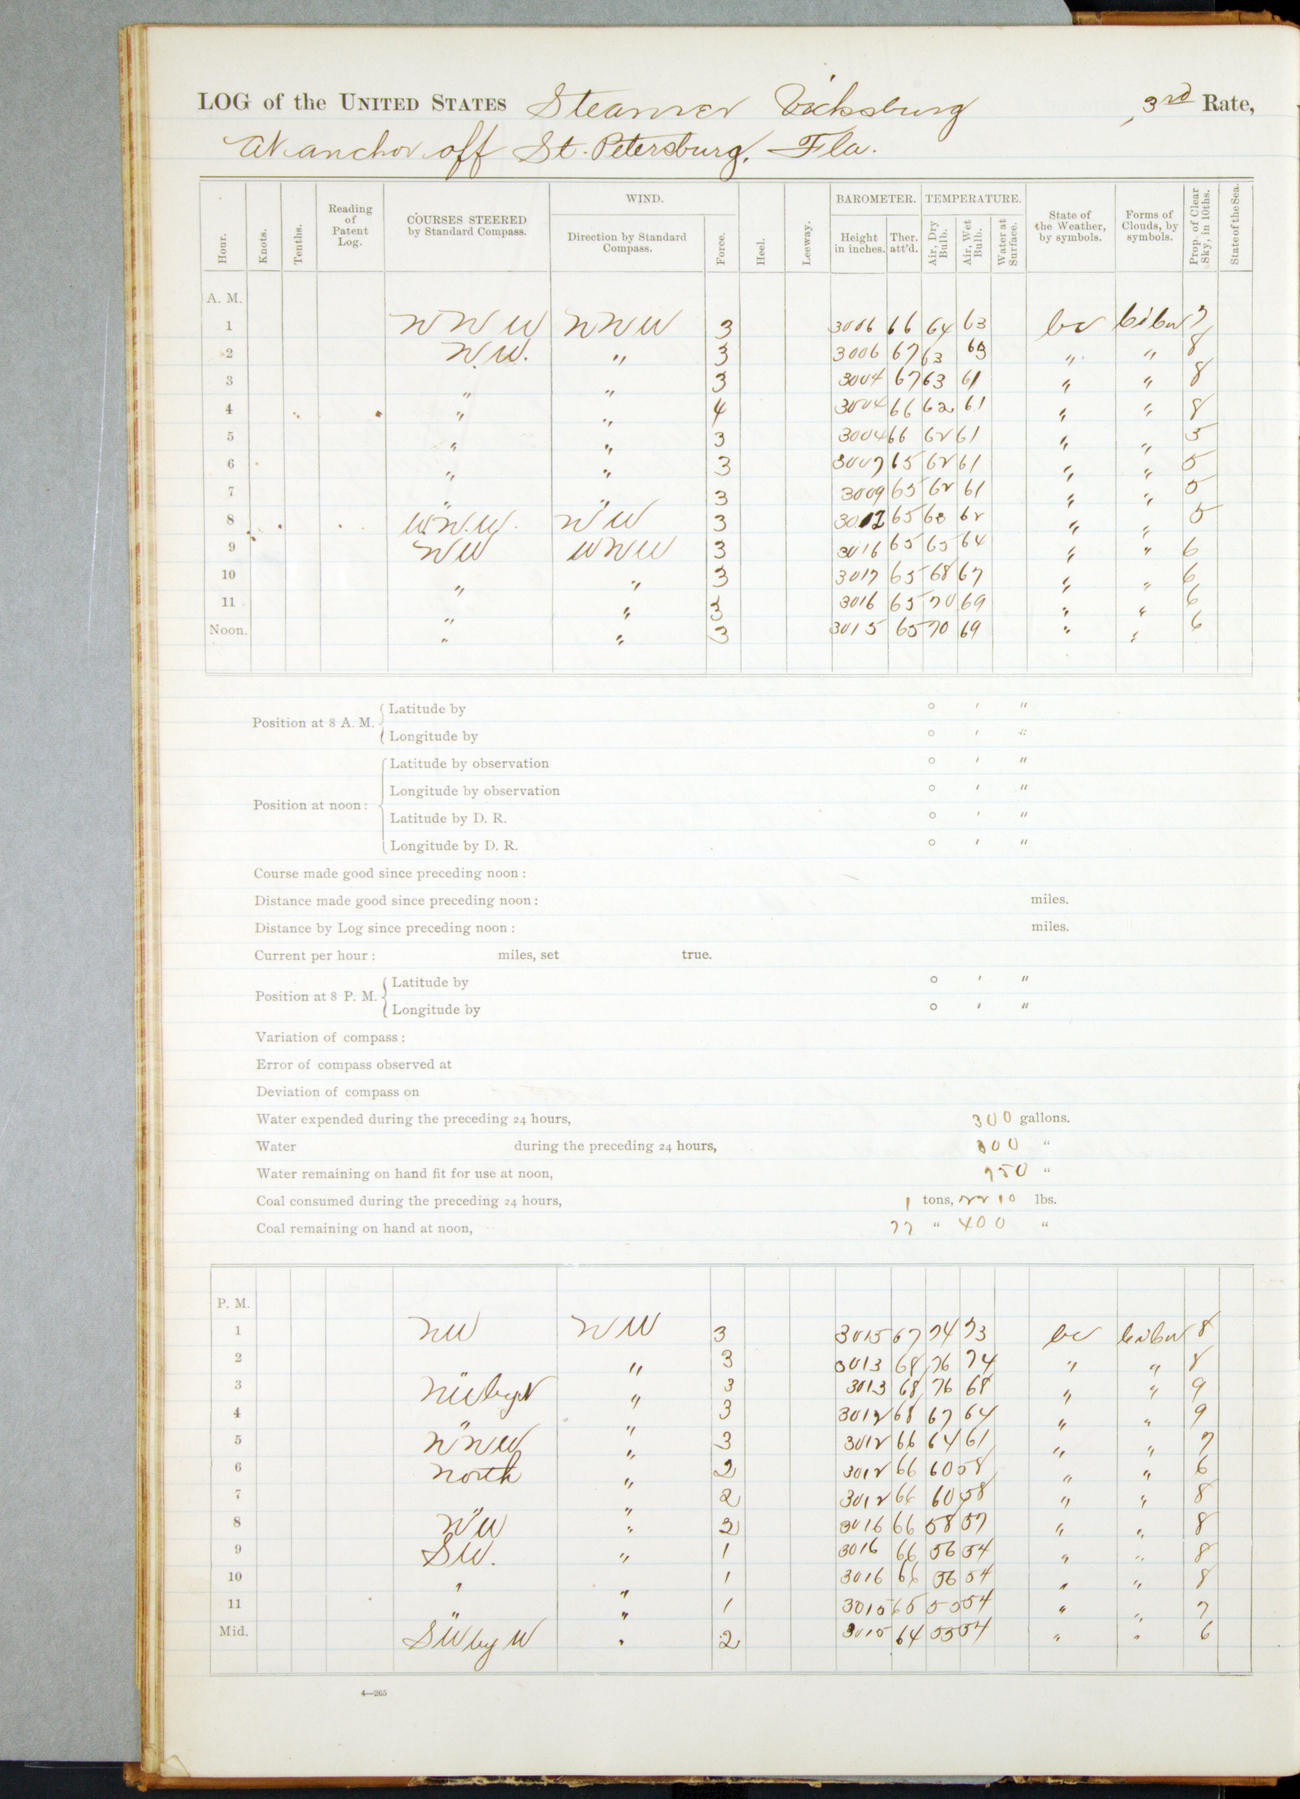 LOG of the UNITED STATES Steamer Vicksburg, 3rd Rate,
At anchor off St. Petersburg, Fla.
Hour. Knots. Tenths. Reading of Patent Log. COURSES STEERED by Standard Compass. WIND. Direction by Standard Compass. Force. Heel. Leeway. BAROMETER. Height in inches. Ther. att'd. TEMPERATURE. Air, Dry Bulb. Air, Wet Bulb. Water at Surface. State of the Weather, by symbols. Forms of Clouds, by symbols. Prop. of Clear Sky, in 10ths. State of the Sea.
A. M.
1 NNW NNW 3 3006 66 64 63 bc 7
2 NW. " 3 3006 67 63 63 " " 8
3 " " 3 3004 67 63 61 " " 8
4 " " 4 3004 66 62 61 " " 8
5 " " 3 3004 66 62 61 " " 5
6 " " 3 3007 65 62 61 " " 5
7 " " 3 3009 65 62 61 " " 5
8 WNW. NW 3 3012 65 63 62 " " 5
9 NW WNW 3 3016 65 65 64 " " 6
10 " " 3 3017 65 68 67 " " 6
11 " " 3 3016 65 70 69 " " 6
Noon. " " 3 3015 65 70 69 " " 6
Position at 8 A. M. Latitude by ° ′ ″
Longitude by ° ′ ″
Position at noon: Latitude by observation ° ′ ″
Longitude by observation ° ′ ″
Latitude by D. R. ° ′ ″
Longitude by D. R. ° ′ ″
Course made good since preceding noon:
Distance made good since preceding noon: miles.
Distance by Log since preceding noon: miles.
Current per hour: miles, set true.
Position at 8 P. M. Latitude by ° ′ ″
Longitude by ° ′ ″
Variation of compass:
Error of compass observed at
Deviation of compass on
Water expended during the preceding 24 hours, 300 gallons.
Water during the preceding 24 hours, 300 "
Water remaining on hand fit for use at noon, 950 "
Coal consumed during the preceding 24 hours, 1 tons, 2210 lbs.
Coal remaining on hand at noon, 77 " 400 "
P. M.
1 NW NW 3 3015 67 74 73 bc 8
2 " 3 3013 68 76 74 " " 8
3 NW by N " 3 3013 68 76 68 " " 9
4 " " 3 3012 68 67 64 " " 9
5 NNW " 3 3012 66 64 61 " " 7
6 North " 2 3012 66 60 58 " " 6
7 " " 2 3012 66 60 58 " " 8
8 NW " 2 3016 66 58 57 " " 8
9 SW. " 1 3016 66 56 54 " " 8
10 " " 1 3016 66 56 54 " " 8
11 " " 1 3015 65 55 54 " " 7
Mid. SW by W " 2 3015 64 55 54 " " 6
4—265